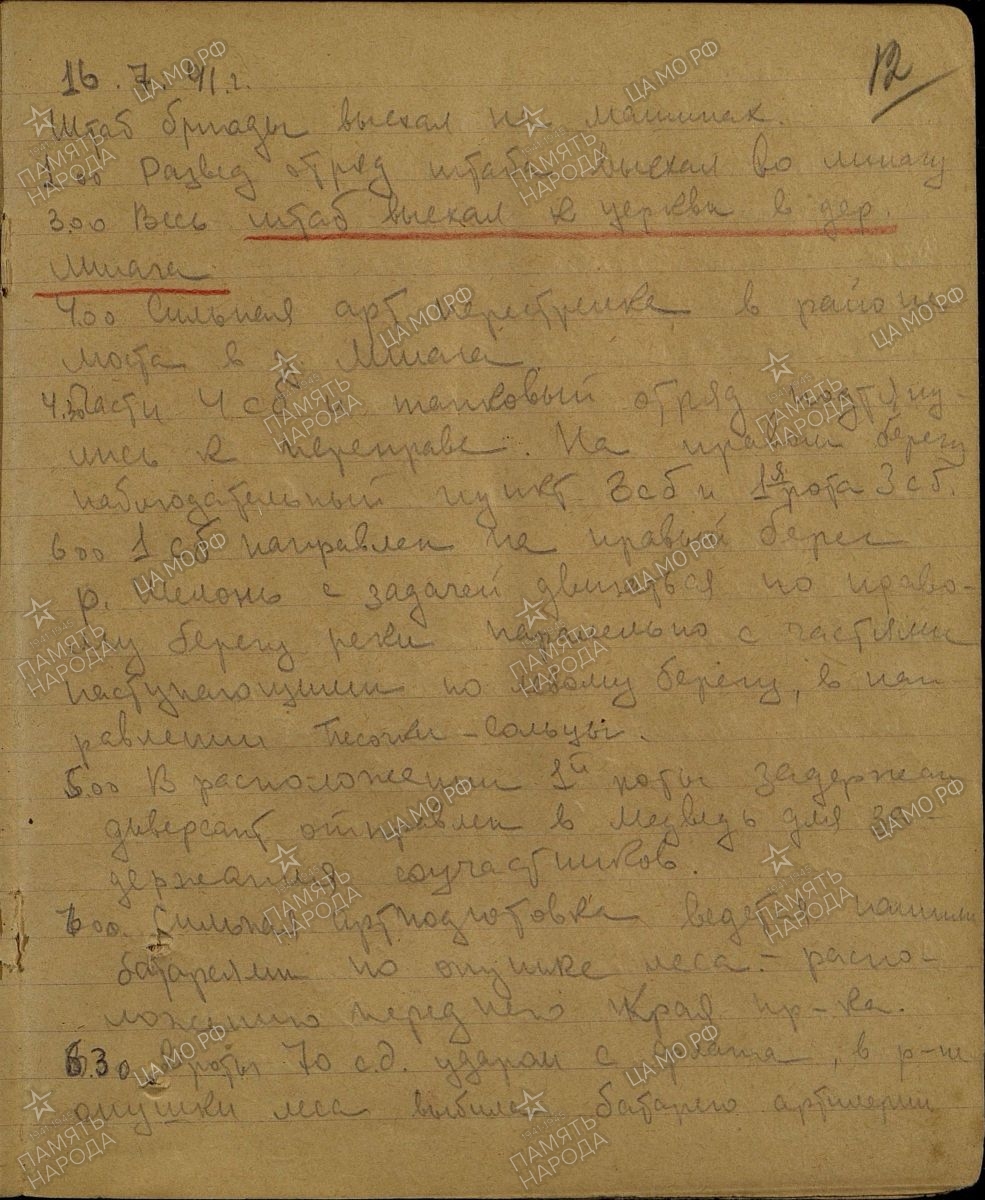 12
16.7.41 г.
Штаб бригады выехал на машинах.
1.00 Развед отряд штаба выехал во мшагу
3.00 Весь штаб выехал к церкви в дер.
Мшага
4.00 Сильная арт перестрелка в районе
моста в д. Мшага
4.30 Части 4 сб и танковый отряд подтяну-
лись к переправе. На правом берегу
наблюдательный пункт 3 сб и 1я рота 3 сб.
6 00 1 сб направлен на правый берег
р. Шелонь с задачей двигаться по право-
му берегу реки паралельно с частями
наступающими по левому берегу, в нап-
равлении Песочки - Сольцы.
5.00 В расположении 1й роты задержан
диверсант отправлен в Медведь для за-
держания соучастников.
7 00. Сильная артподготовка ведется нашими
батареями по опушке леса - распо-
ложению переднего края пр-ка.
6.30 роты 70 с.д. ударом с фланга, в р-не
опушки леса выбила батарею артилерии